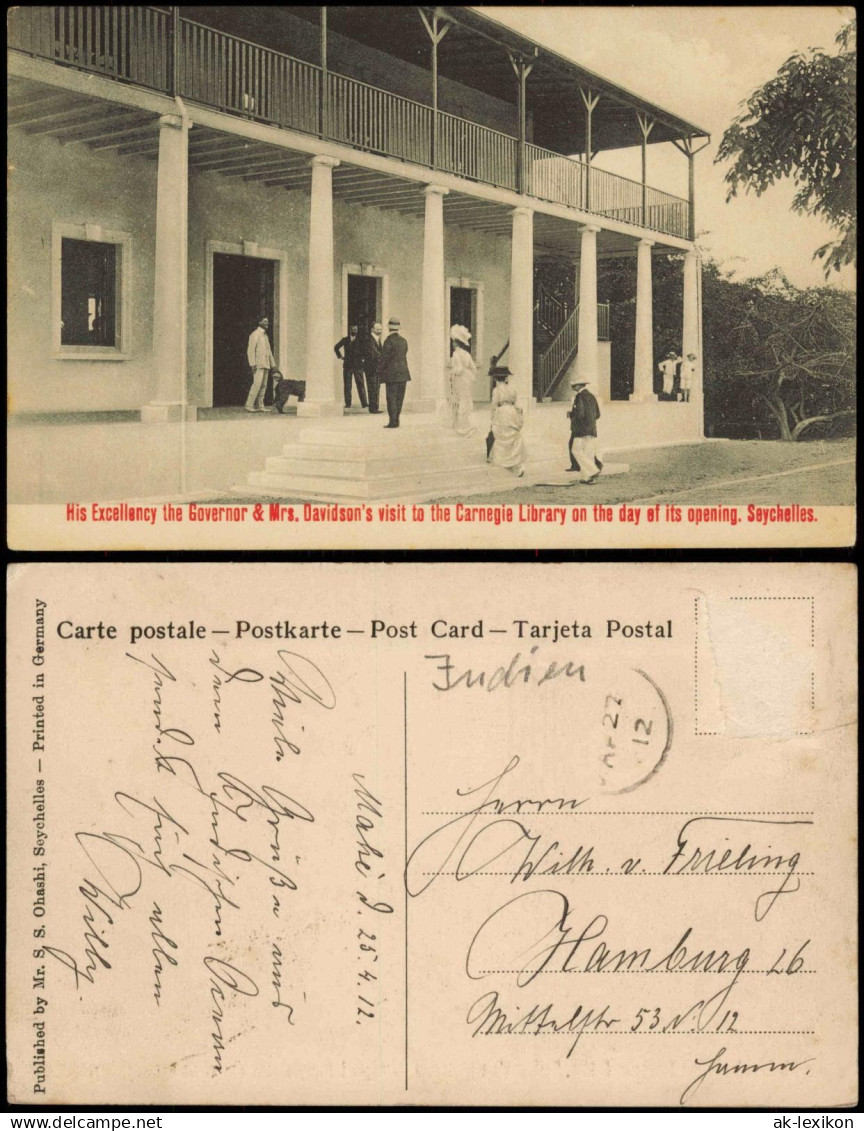 His Excellency the Governor & Mrs. Davidson's visit to the Carnegie Library on the day of its opening. Seychelles.
Carte postale — Postkarte — Post Card — Tarjeta Postal
Published by Mr. S. S. Ohashi, Seychelles — Printed in Germany
Mahé d. 25.4.12.
Viele Grüße aus
dem Indischen Ocean
sendet
Willy.
Indien
22
12
Herrn
Wilh. v. Frieling
Hamburg 26
Mittelstr 53 12
Hamm.
ak-lexikon